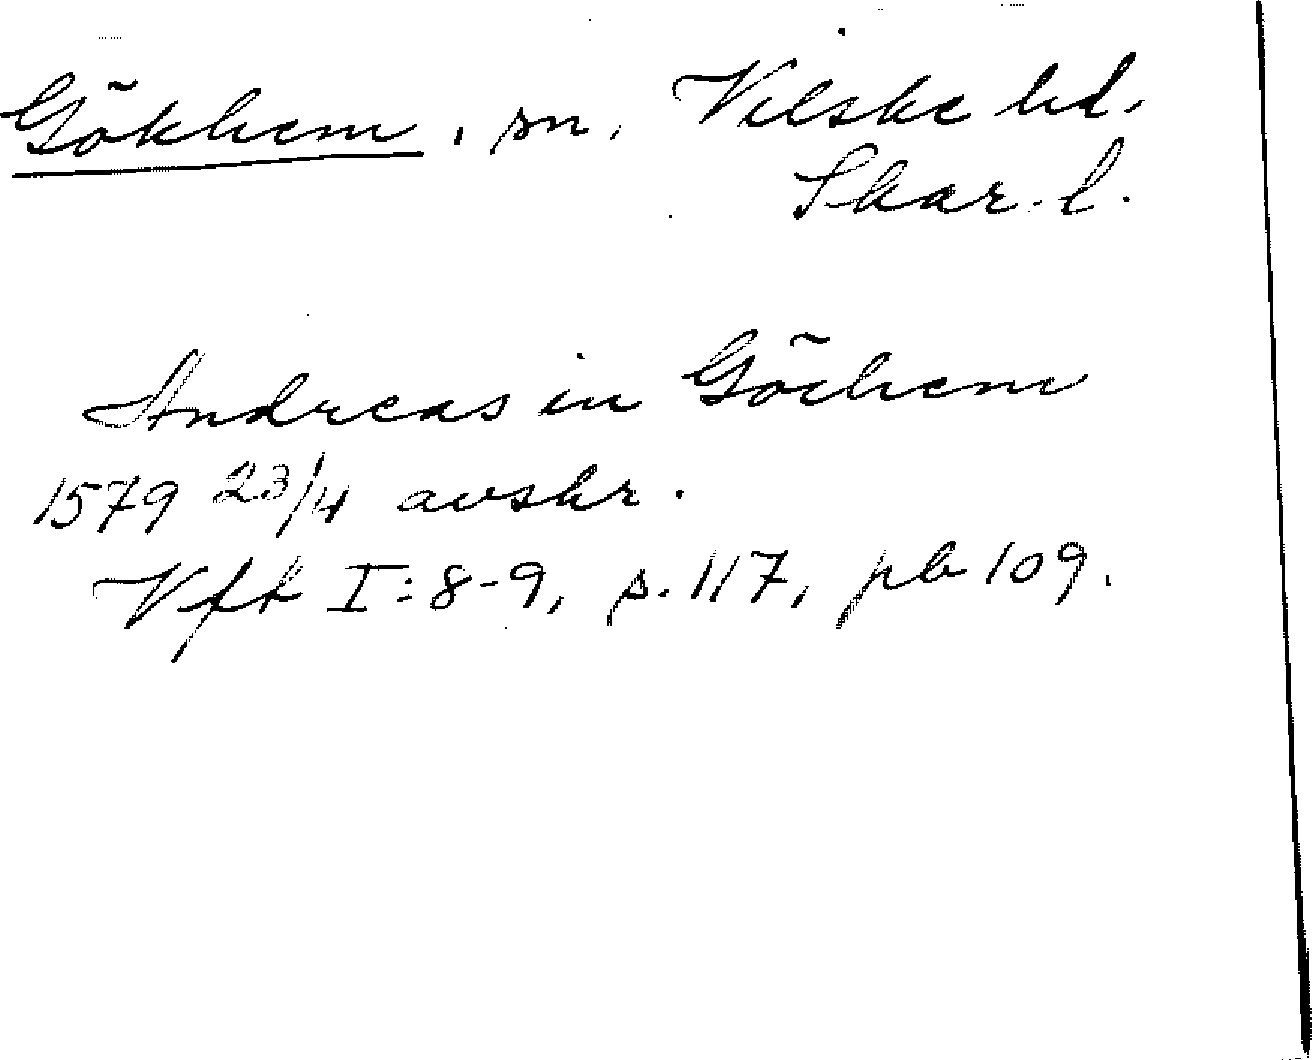 Gökhem, sn, Vilske hd.
Skar. l.
Andreas in Göchem
1579 23/4 avskr.
Vfk I:8-9, s. 117, pb 109.